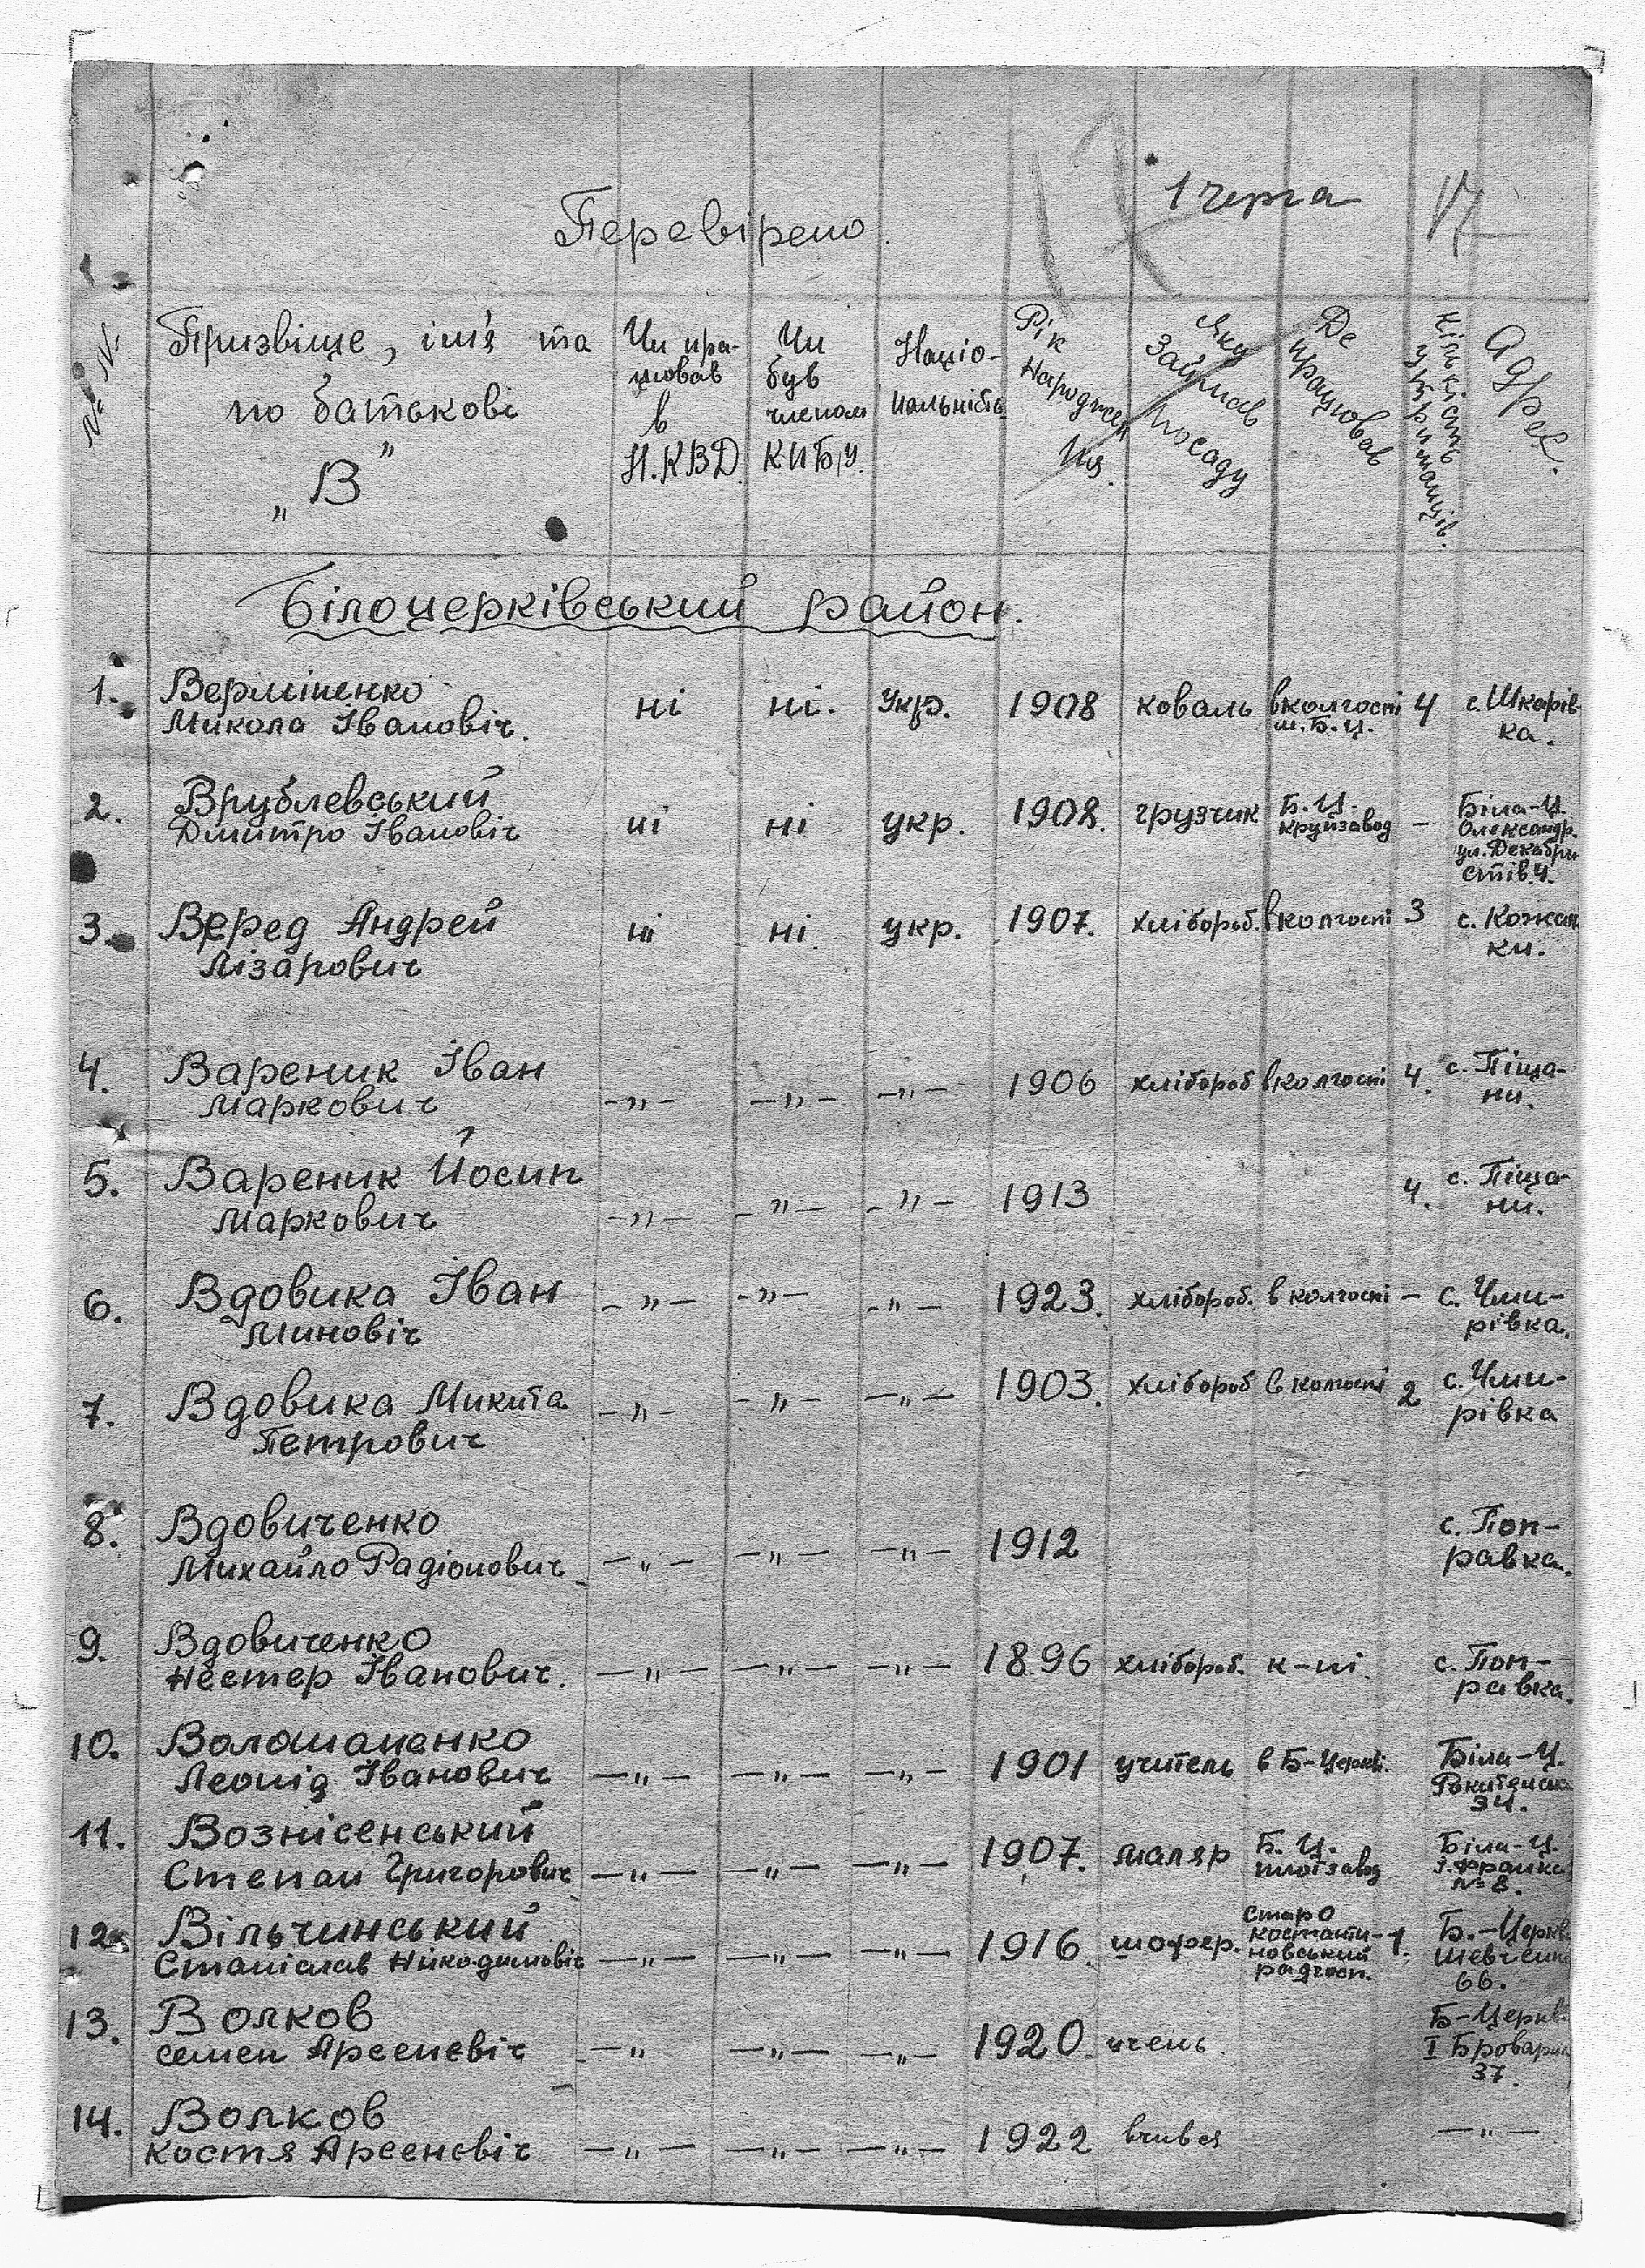 1 черга 17
Перевірено.
№ № Призвіще, ім'я та по батькові „В” Чи працював в Н.КВД. Чи був членом КПБ/У. Національність Рік народження. Яку займав посаду Де працював Кількість утриманців. Адрес.
Білоцерківський район.
1. Верміненко ні ні. Укр. 1908 коваль в колгоспі 4 с. Шкарів-
Микола Івановіч. м. Б.Ц. ка.
2. Врублевський ні ні укр. 1908. грузчик Б.Ц. – Біла-Ц.
Дмитро Івановіч крупзавод Олександр.
ул. Декабри
стів 4.
3. Веред Андрей ні ні. укр. 1907. хлібороб. в колгоспі 3 с. Кожан
Лізарович ки.
4. Вареник Іван –„– –„– –„– 1906 хлібороб в колгоспі 4. с. Піща-
Маркович ни.
5. Вареник Йосип –„– –„– –„– 1913 4. с. Піща-
Маркович ни.
6. Вдовика Іван –„– –„– –„– 1923. хлібороб. в колгоспі – с. Чми-
Миновіч рівка.
7. Вдовика Микита –„– –„– –„– 1903. хлібороб в колгоспі 2 с. Чми-
Петрович рівка
8. Вдовиченко –„– –„– –„– 1912 с. Поп-
Михайло Радіонович равка.
9. Вдовиченко –„– –„– –„– 1896 хлібороб. к-пі. с. Поп-
Нестер Іванович. равка.
10. Волошаненко –„– –„– –„– 1901 учитель в Б-Церкві. Біла-Ц.
Леонід Іванович 34.
11. Вознісенський –„– –„– –„– 1907. маляр Б.Ц. Біла-Ц.
Степан Григорович І. Франка
№ 8.
12. Вільчинський –„– –„– –„– 1916. шофер. Старо 1. Б.-Церкв
Станіслав Нікодимовіч костанти-
новський
радгосп. 66.
13. Волков –„ –„– –„– 1920. учень. Б-Церкв
Семен Арсеневіч І Броварна
37.
14. Волков –„– –„– –„– 1922 –„–
Костя Арсеневіч